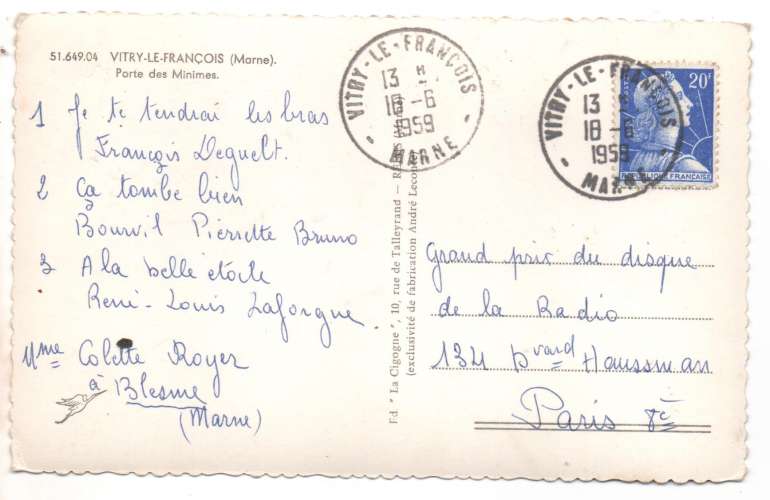 51.649.04 VITRY-LE-FRANÇOIS (Marne).
Porte des Minimes.
1 Je te tendrai les bras
François Deguelt.
2 Ça tombe bien
Bourvil Pierrette Bruno
3 A la belle étoile
René-Louis Laforgue
Mme Colette Royer
à Blesme
(Marne)
VITRY-LE-FRANÇOIS
13 H
18-6
1959
MARNE
Ed "La Cigogne", 10, rue de Talleyrand —
(exclusivité de fabrication André Leconte)
VITRY-LE-FRANÇOIS
13 H
18-6
1959
MARNE
20F
REPUBLIQUE FRANÇAISE
Grand prix du disque
de la Radio
134 Bvard Haussman
Paris 8e